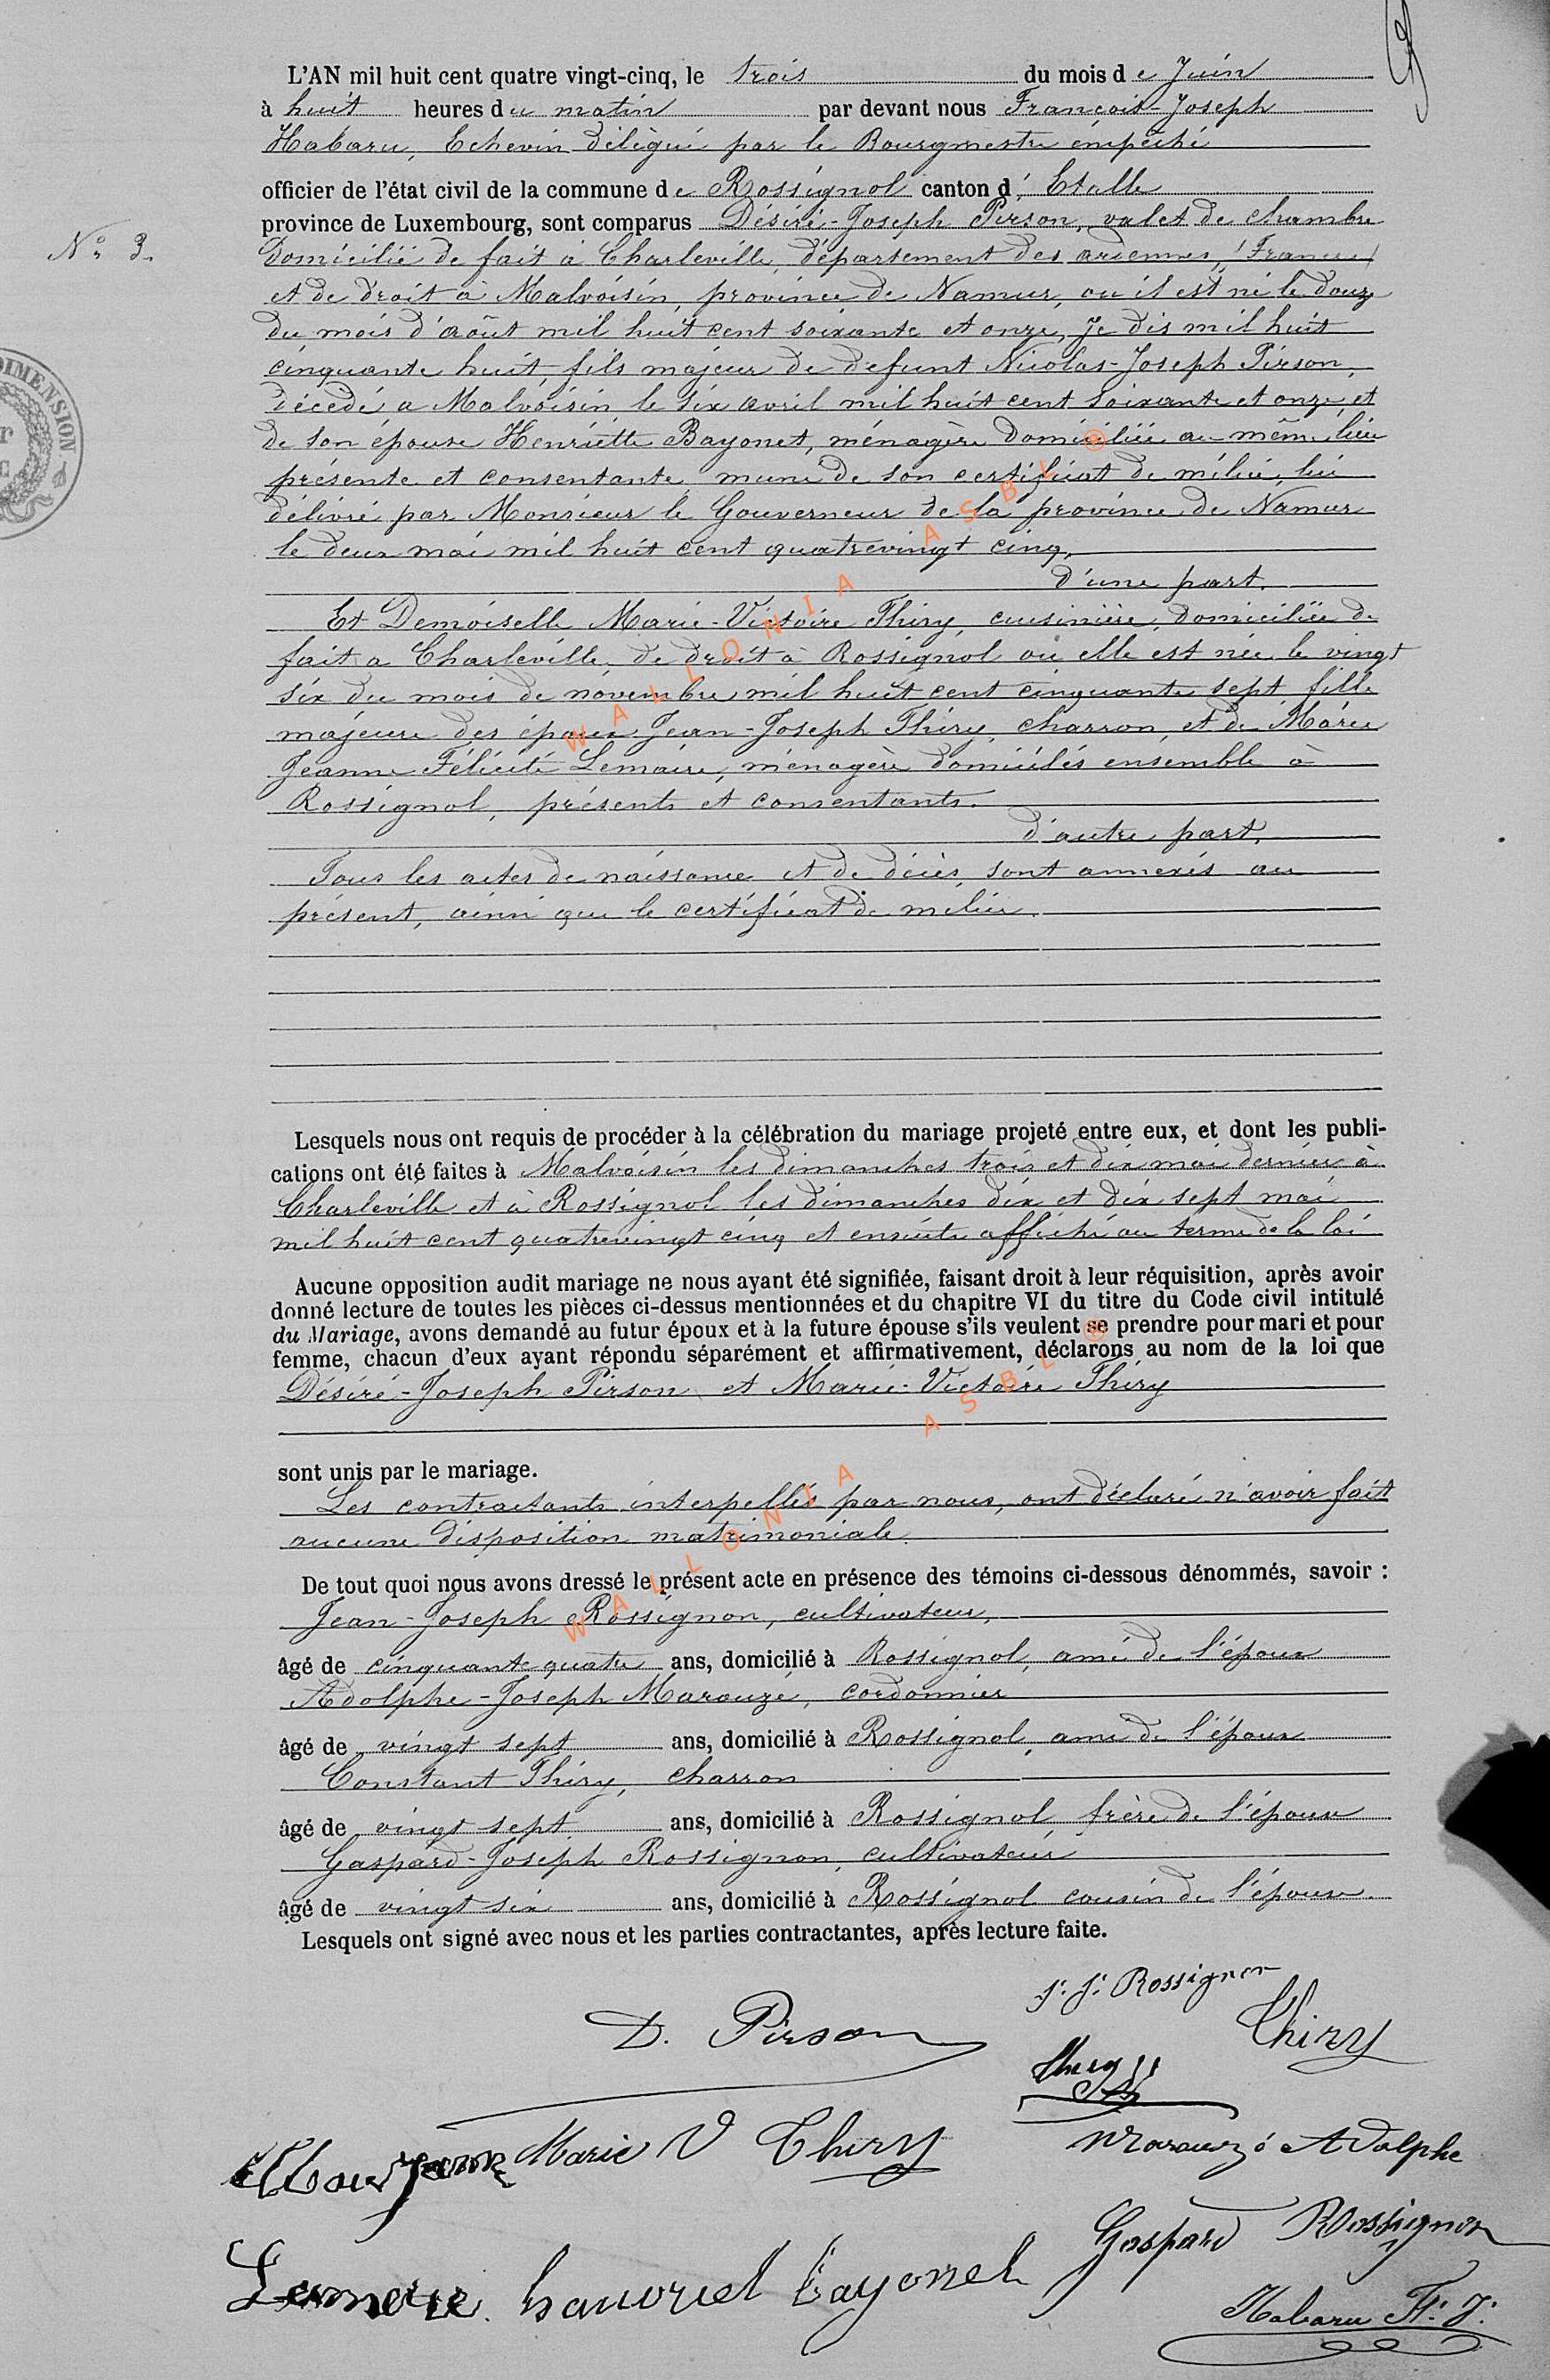 L'AN mil huit cent quatre vingt-cinq, le trois du mois de Juin
à huit heures du matin par devant nous François-Joseph
Habaru, Echevin délégué par le Bourgmestre empêché
officier de l'état civil de la commune de Rossignol canton d'Etalle
province de Luxembourg, sont comparus Désiré-Joseph Pirson, valet de chambre
N° 3.
domicilié de fait à Charleville, département des ardennes, (France)
et de droit à Malvoisin, province de Namur, ou il est né le douze
du mois d'août mil huit cent soixante et onze, je dis mil huit
cinquante huit, fils majeur de défunt Nicolas-Joseph Pirson,
décédé a Malvoisin le six avril mil huit cent soixante et onze, et
de son épouse Henriette Bayonet, ménagère domiciliée au même lieu
présente et consentante, muni de son certificat de milice, lui
délivré par Monsieur le Gouverneur de la province de Namur
le deux mai mil huit cent quatrevingt cinq,
d'une part.
Et Demoiselle Marie-Victoire Thiry, cuisinière, domiciliée de
fait a Charleville, de droit à Rossignol où elle est née le vingt
six du mois de novembre mil huit cent cinquante sept fille
majeure des époux Jean-Joseph Thiry, charron, et de Marie
Jeanne Félicité Lemaire, ménagère domiciliés ensemble à
Rossignol, présents et consentants.
d'autre part,
Tous les actes de naissance et de décès, sont annexés au
présent, ainsi que le certificat de milice.
Lesquels nous ont requis de procéder à la célébration du mariage projeté entre eux, et dont les publi-
cations ont été faites à Malvoisin les dimanches trois et dix mai dernier à
Charleville et à Rossignol les dimanches dix et dix sept mai
mil huit cent quatrevingt cinq et ensuite affiché au terme de la loi
Aucune opposition audit mariage ne nous ayant été signifiée, faisant droit à leur réquisition, après avoir
donné lecture de toutes les pièces ci-dessus mentionnées et du chapitre VI du titre du Code civil intitulé
du Mariage, avons demandé au futur époux et à la future épouse s'ils veulent se prendre pour mari et pour
femme, chacun d'eux ayant répondu séparément et affirmativement, déclarons au nom de la loi que
Désiré-Joseph Pirson et Marie-Victoire Thiry
sont unis par le mariage.
Les contractants interpellés par nous, ont déclaré n'avoir fait
aucune disposition matrimoniale.
De tout quoi nous avons dressé le présent acte en présence des témoins ci-dessous dénommés, savoir :
Jean-Joseph Rossignon, cultivateur,
âgé de cinquante quatre ans, domicilié à Rossignol, ami de l'époux
Adolphe-Joseph Marouzé, cordonnier
âgé de vingt sept ans, domicilié à Rossignol, ami de l'époux
Constant Thiry, charron
âgé de vingt sept ans, domicilié à Rossignol frère de l'épouse
Gaspard-Joseph Rossignon, cultivateur
âgé de vingt six ans, domicilié à Rossignol cousin de l'épouse.
Lesquels ont signé avec nous et les parties contractantes, après lecture faite.
J. J. Rossignon
D. Pirson
Thiry
Thiry JJ
Marie V Thiry
Marouzé Adolphe
Gaspard Rossignon
Lemaire
Bayonet
Habaru F. J.
DIMENSION
WALLONIA ASBL ®
WALLONIA ASBL ®